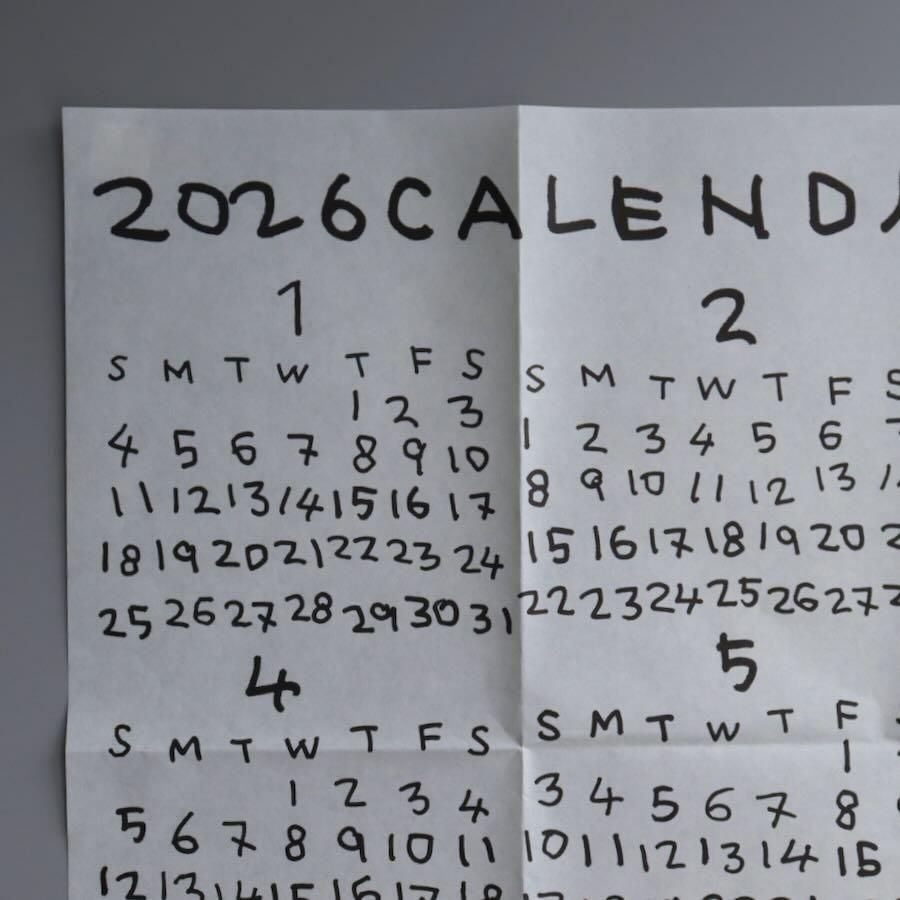 2026 CALENDA
1
S M T W T F S
1 2 3
4 5 6 7 8 9 10
11 12 13 14 15 16 17
18 19 20 21 22 23 24
25 26 27 28 29 30 31
2
S M T W T F S
1 2 3 4 5 6
8 9 10 11 12 13
15 16 17 18 19 20
22 23 24 25 26 27
4
S M T W T F S
1 2 3 4
5 6 7 8 9 10 11
12 13 14 15 16 17 18
5
S M T W T F
1
3 4 5 6 7 8
10 11 12 13 14 15